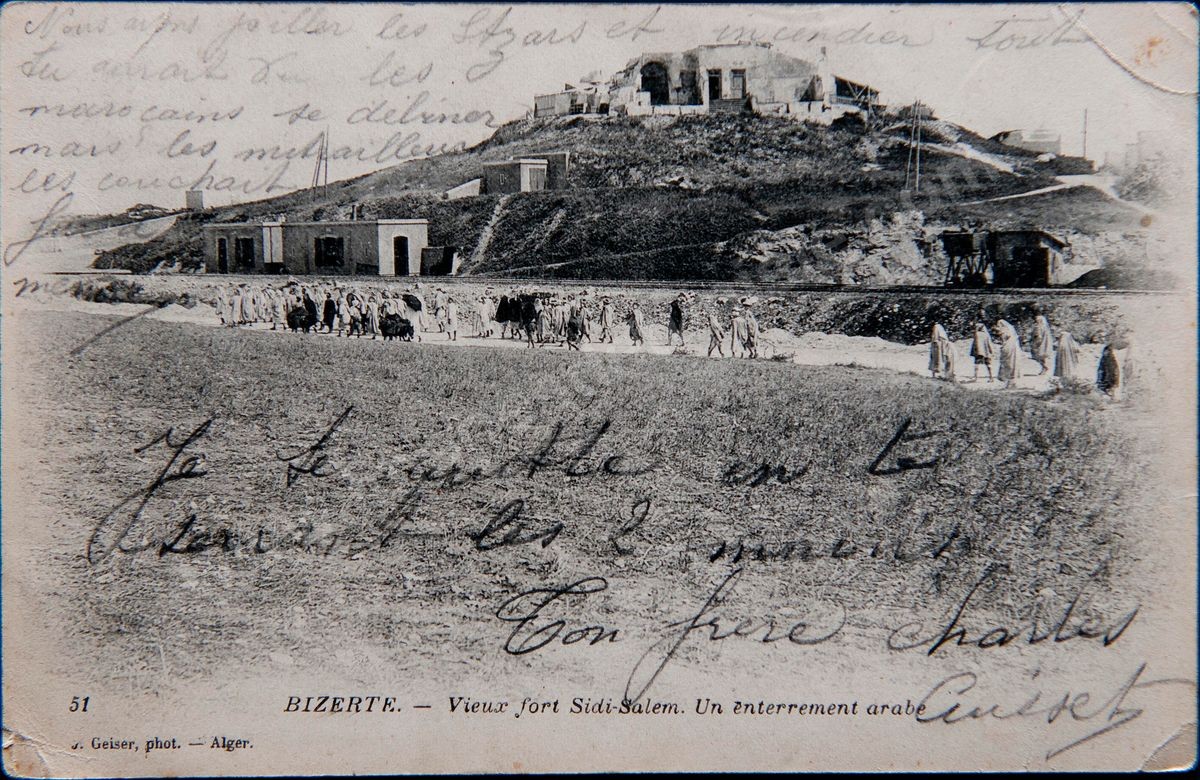 Nous avons piller les et incendier tout
tu aurait vu les
marocains se
mais les mitrailleuses
les couchait
Je
Je te quitte en te
serrant les 2 mains
Ton frère charles
Cuisset
51
BIZERTE. — Vieux fort Sidi-Salem. Un enterrement arabe
J. Geiser, phot. — Alger.